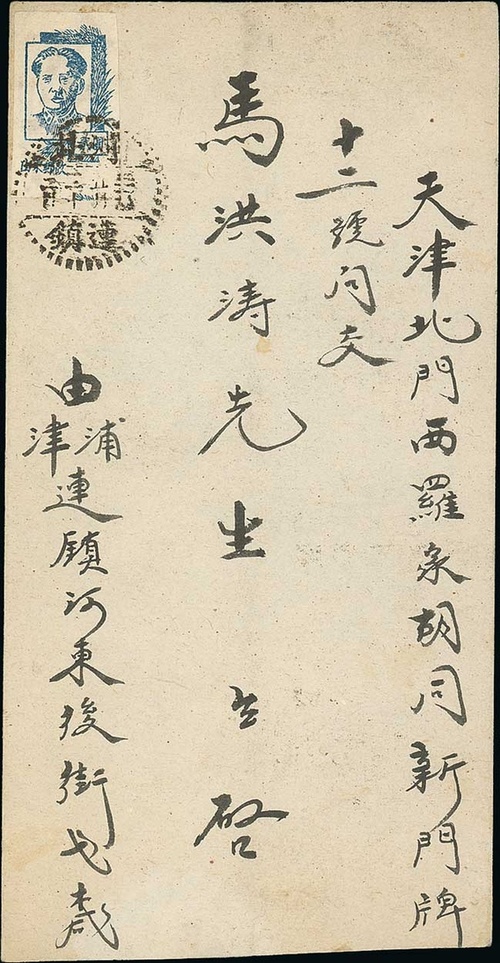 天津北門西羅家胡同新門牌
十二號交
馬洪涛先生 台啓
由津浦連鎮河東後街
連鎮